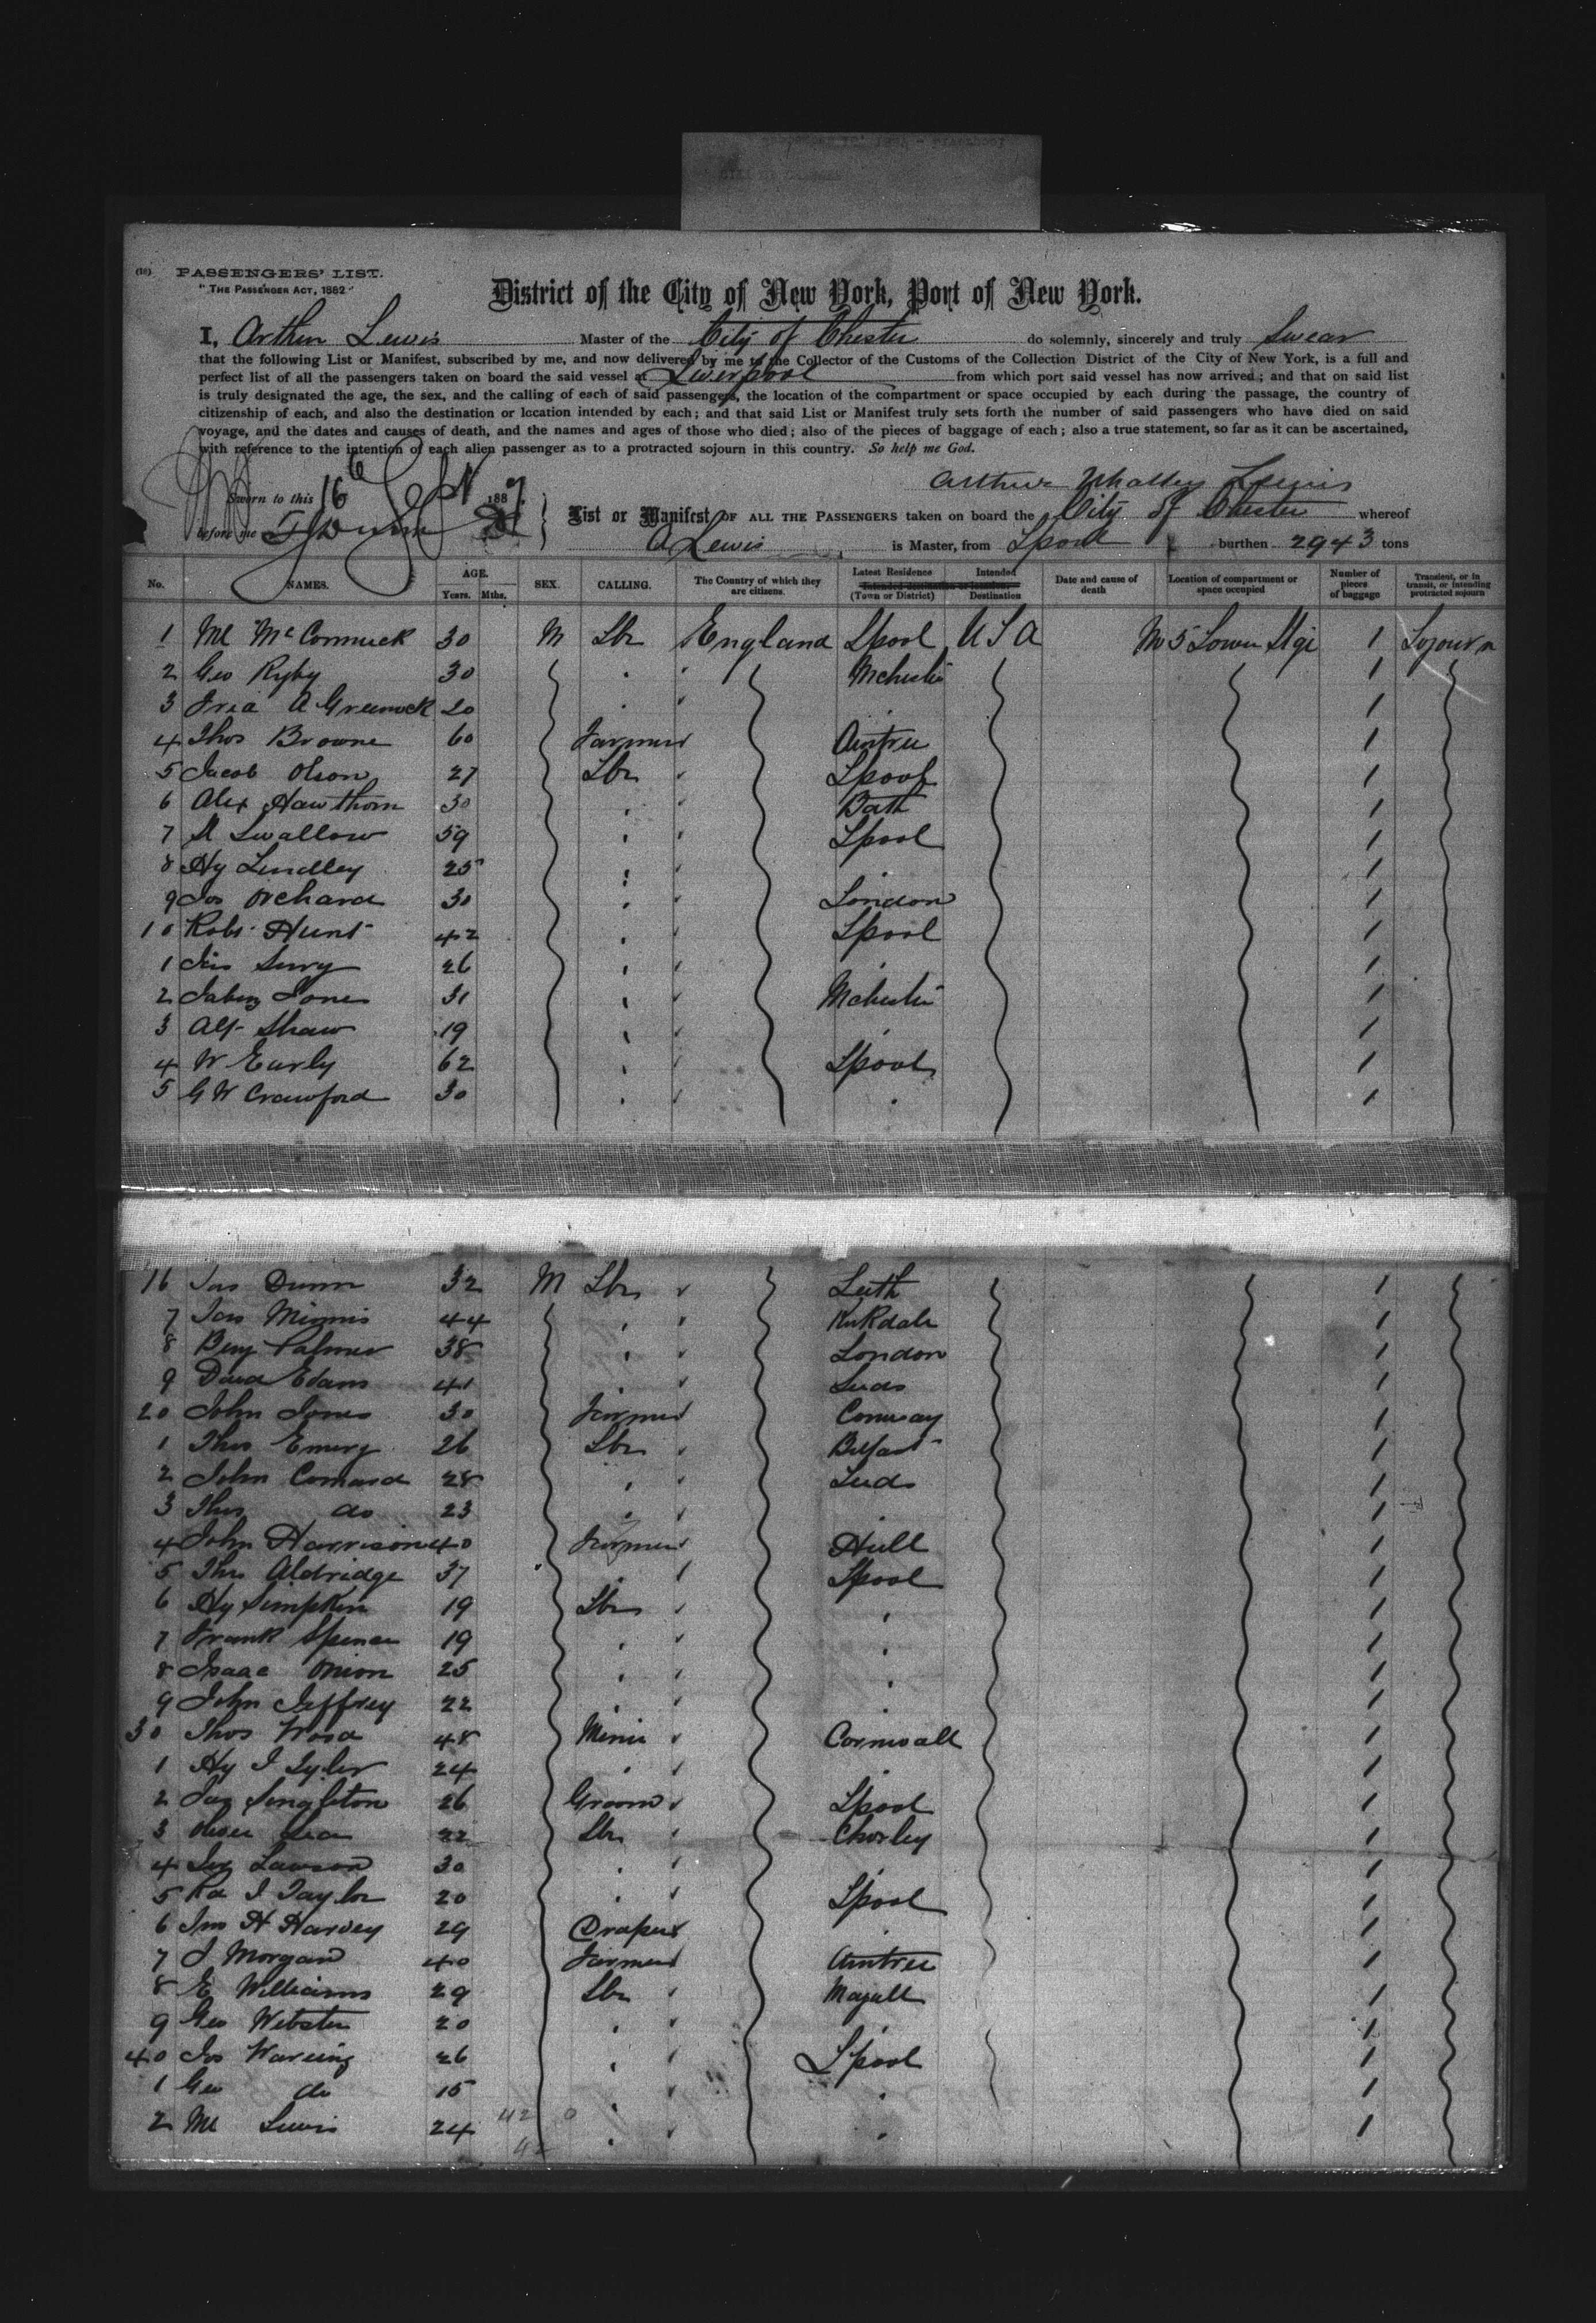 (18) PASSENGERS' LIST.
"THE PASSENGER ACT, 1882"
District of the City of New York, Port of New York.
I, Arthur Lewis Master of the City of Chester do solemnly, sincerely and truly Swear
that the following List or Manifest, subscribed by me, and now delivered by me to the Collector of the Customs of the Collection District of the City of New York, is a full and
perfect list of all the passengers taken on board the said vessel at Liverpool from which port said vessel has now arrived; and that on said list
is truly designated the age, the sex, and the calling of each of said passengers, the location of the compartment or space occupied by each during the passage, the country of
citizenship of each, and also the destination or location intended by each; and that said List or Manifest truly sets forth the number of said passengers who have died on said
voyage, and the dates and causes of death, and the names and ages of those who died; also of the pieces of baggage of each; also a true statement, so far as it can be ascertained,
with reference to the intention of each alien passenger as to a protracted sojourn in this country. So help me God.
Arthur Whalley Lewis
Sworn to this 16 Sept 1887
before me
List or Manifest OF ALL THE PASSENGERS taken on board the City of Chester whereof
A Lewis is Master, from Lpool burthen 2943 tons
No. NAMES. AGE. Years. Mths. SEX. CALLING. The Country of which they are citizens. Latest Residence (Town or District) Intended Destination Date and cause of death Location of compartment or space occupied Number of pieces of baggage Transient, or in transit, or intending protracted sojourn
1 Ml McCormuck 30 M Lbr England Lpool U S A No 5 Lower Stge 1 Sojourn
2 Geo Ryby 30 Mchester 1
3 A Greenock 20 1
4 Thos Browne 60 Farmer Aintree 1
5 Jacob Olson 27 Lbr Lpool 1
6 Alex Hawthorn 30 Bath 1
7 Swallow 59 Lpool 1
8 Hy Lindley 25 1
9 Jos Orchard 30 London 1
10 Robt Hunt 42 Lpool 1
1 26 1
2 Jabez Jones 31 Mchester 1
3 Alf Shaw 19 1
4 W Early 62 Lpool 1
5 G W Crawford 30 1
16 Jas Dunn 32 M Lbr Leith 1
7 Jas Minnis 44 Kirkdale 1
8 Benj Palmer 38 London 1
9 David Edams 41 Leeds 1
20 John Jones 30 Farmer Conway 1
1 Thos Emery 26 Lbr Belfast 1
2 John Comard 28 Leeds 1
3 Thos do 23 1
4 John Harrison 40 Farmer Hull 1
5 Thos Aldridge 37 Lpool 1
6 Hy Simpkin 19 Lbr 1
7 Frank Spence 19 1
8 Isaac Onion 25 1
9 John Jeffrey 22 1
30 Thos Wood 48 Miner Cornwall 1
1 Hy J Tyler 24 1
2 Jas Singleton 26 Groom Lpool 1
3 Oliver Lea 22 Lbr Chorley 1
4 Lawson 30 1
5 Rd J Taylor 20 Lpool 1
6 Jno H Harvey 29 Draper 1
7 J Morgan 40 Farmer Aintree 1
8 E Williams 29 Lbr Magull 1
9 Geo Webster 20 1
40 Jos Wareing 26 Lpool 1
1 Geo do 15 1
2 Ml Lewis 24 1
42 0
42